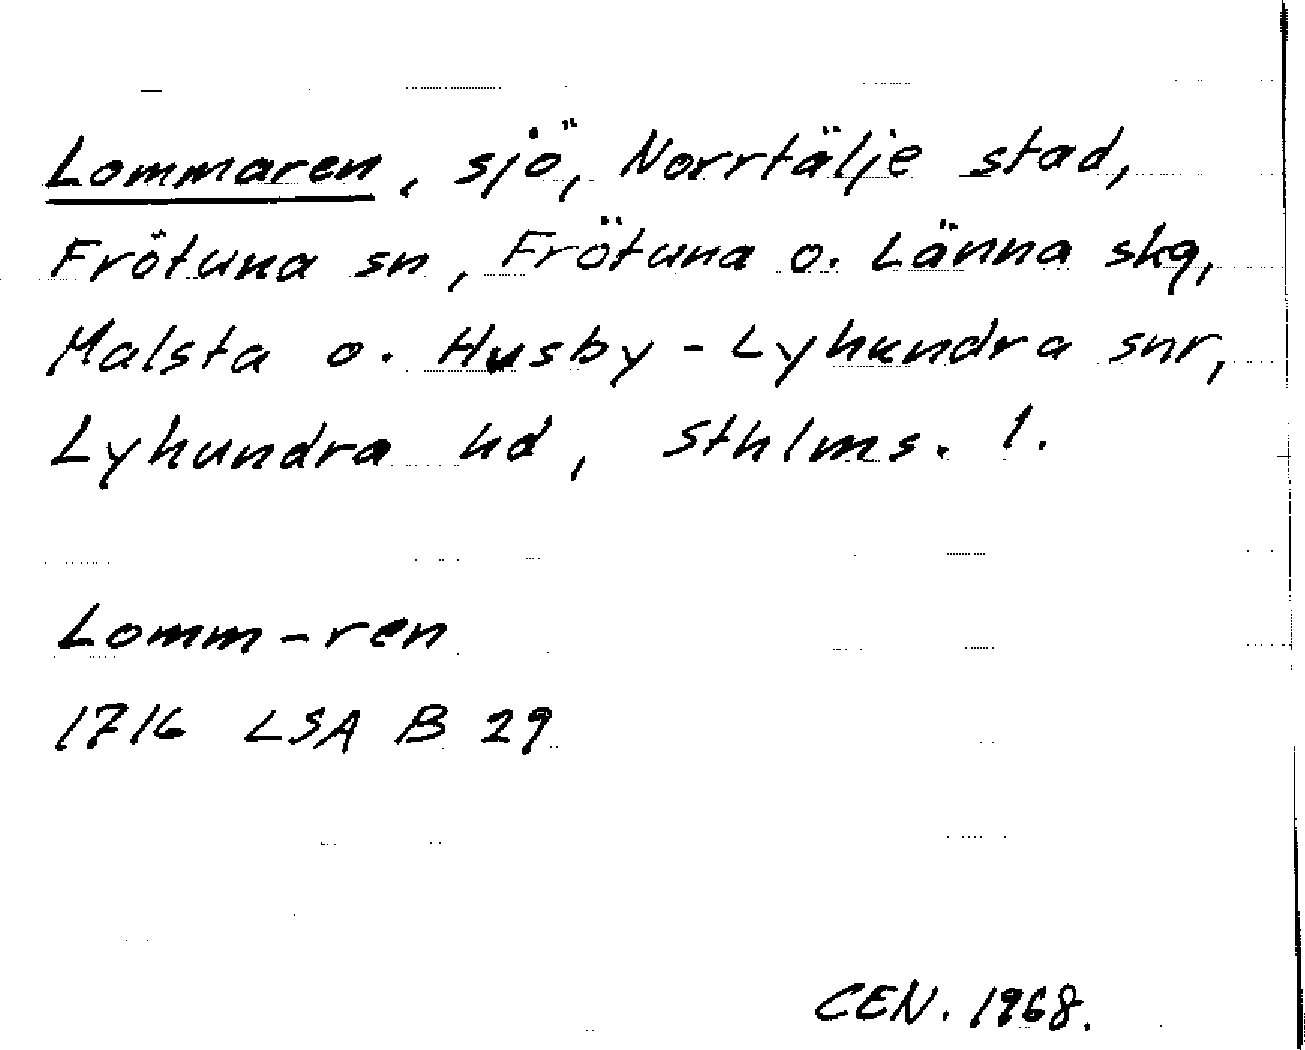 Lommaren, sjö, Norrtälje stad,
Frötuna sn, Frötuna o. Länna skg,
Malsta o. Husby-Lyhundra snr,
Lyhundra hd, Sthlms. l.
Lomm-ren
1716 LSA B 29
CEN. 1968.